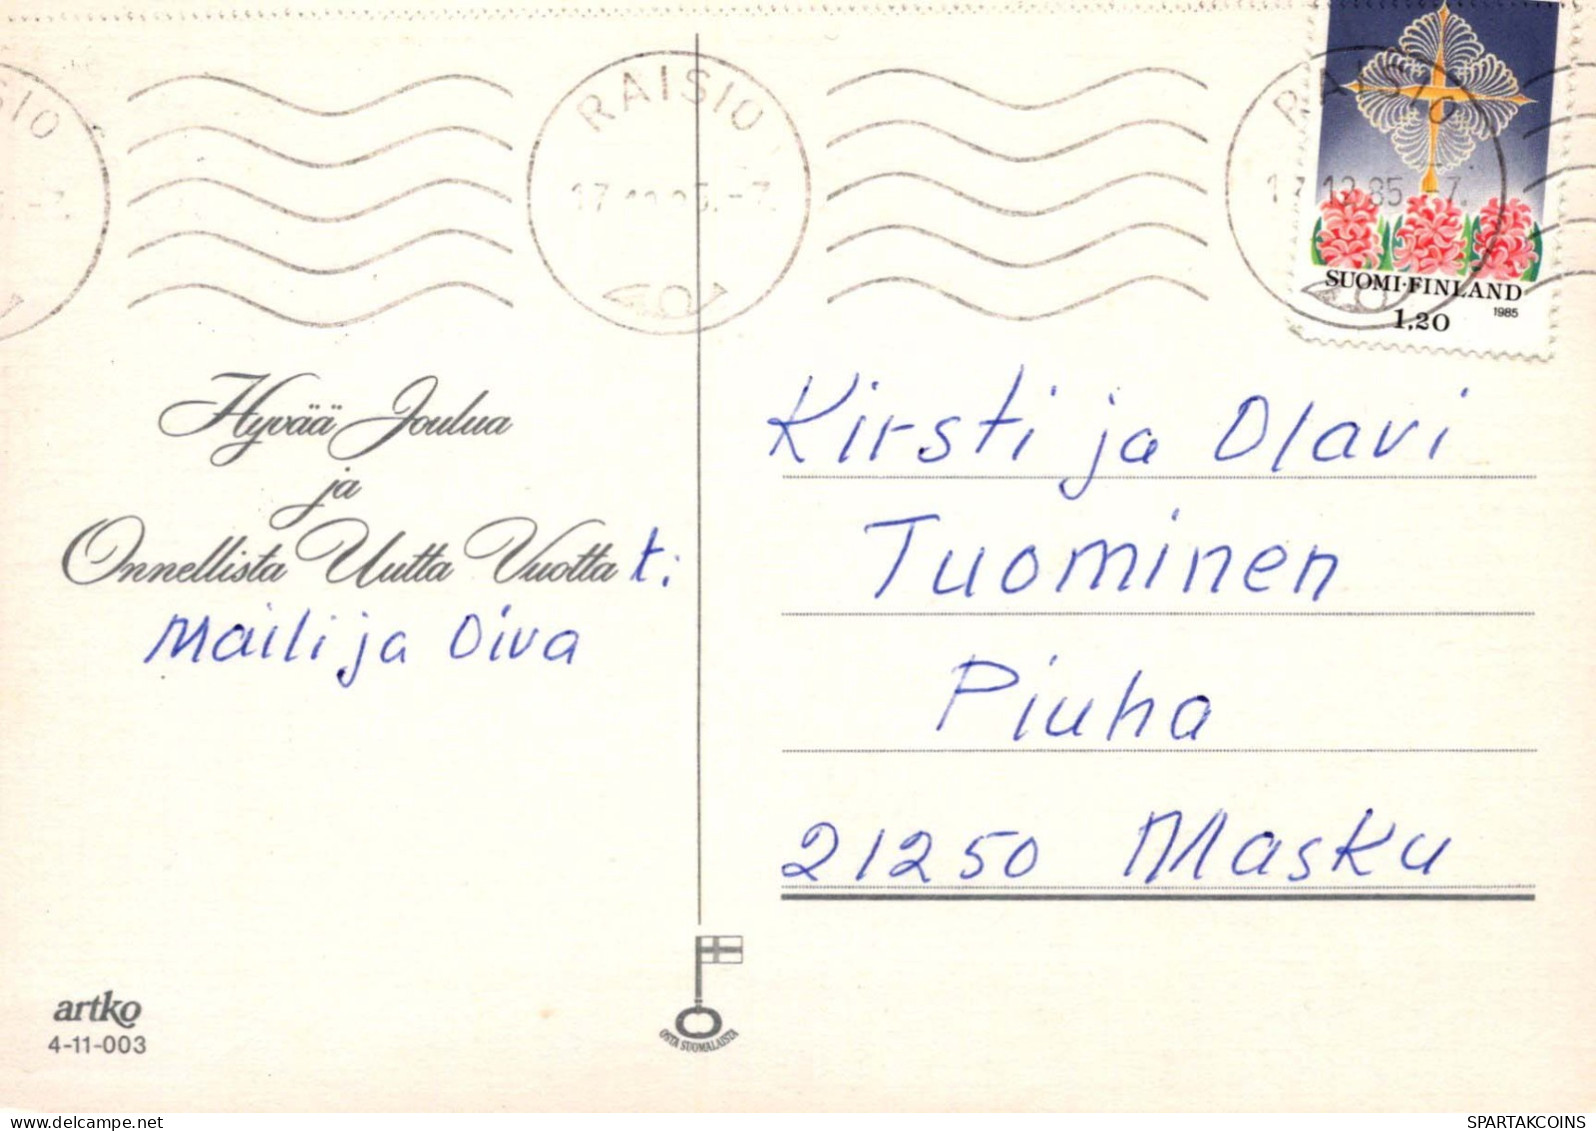 RAISIO
RAISIO
17.12.85.-7.
SUOMI·FINLAND
1985
1,20
Hyvää Joulua
ja
Onnellista Uutta Vuotta t:
Maili ja Oiva
Kirsti ja Olavi
Tuominen
Piuha
21250 Masku
artko
4-11-003
OSTA SUOMALAISTA
www.delcampe.net
SPARTAKCOINS